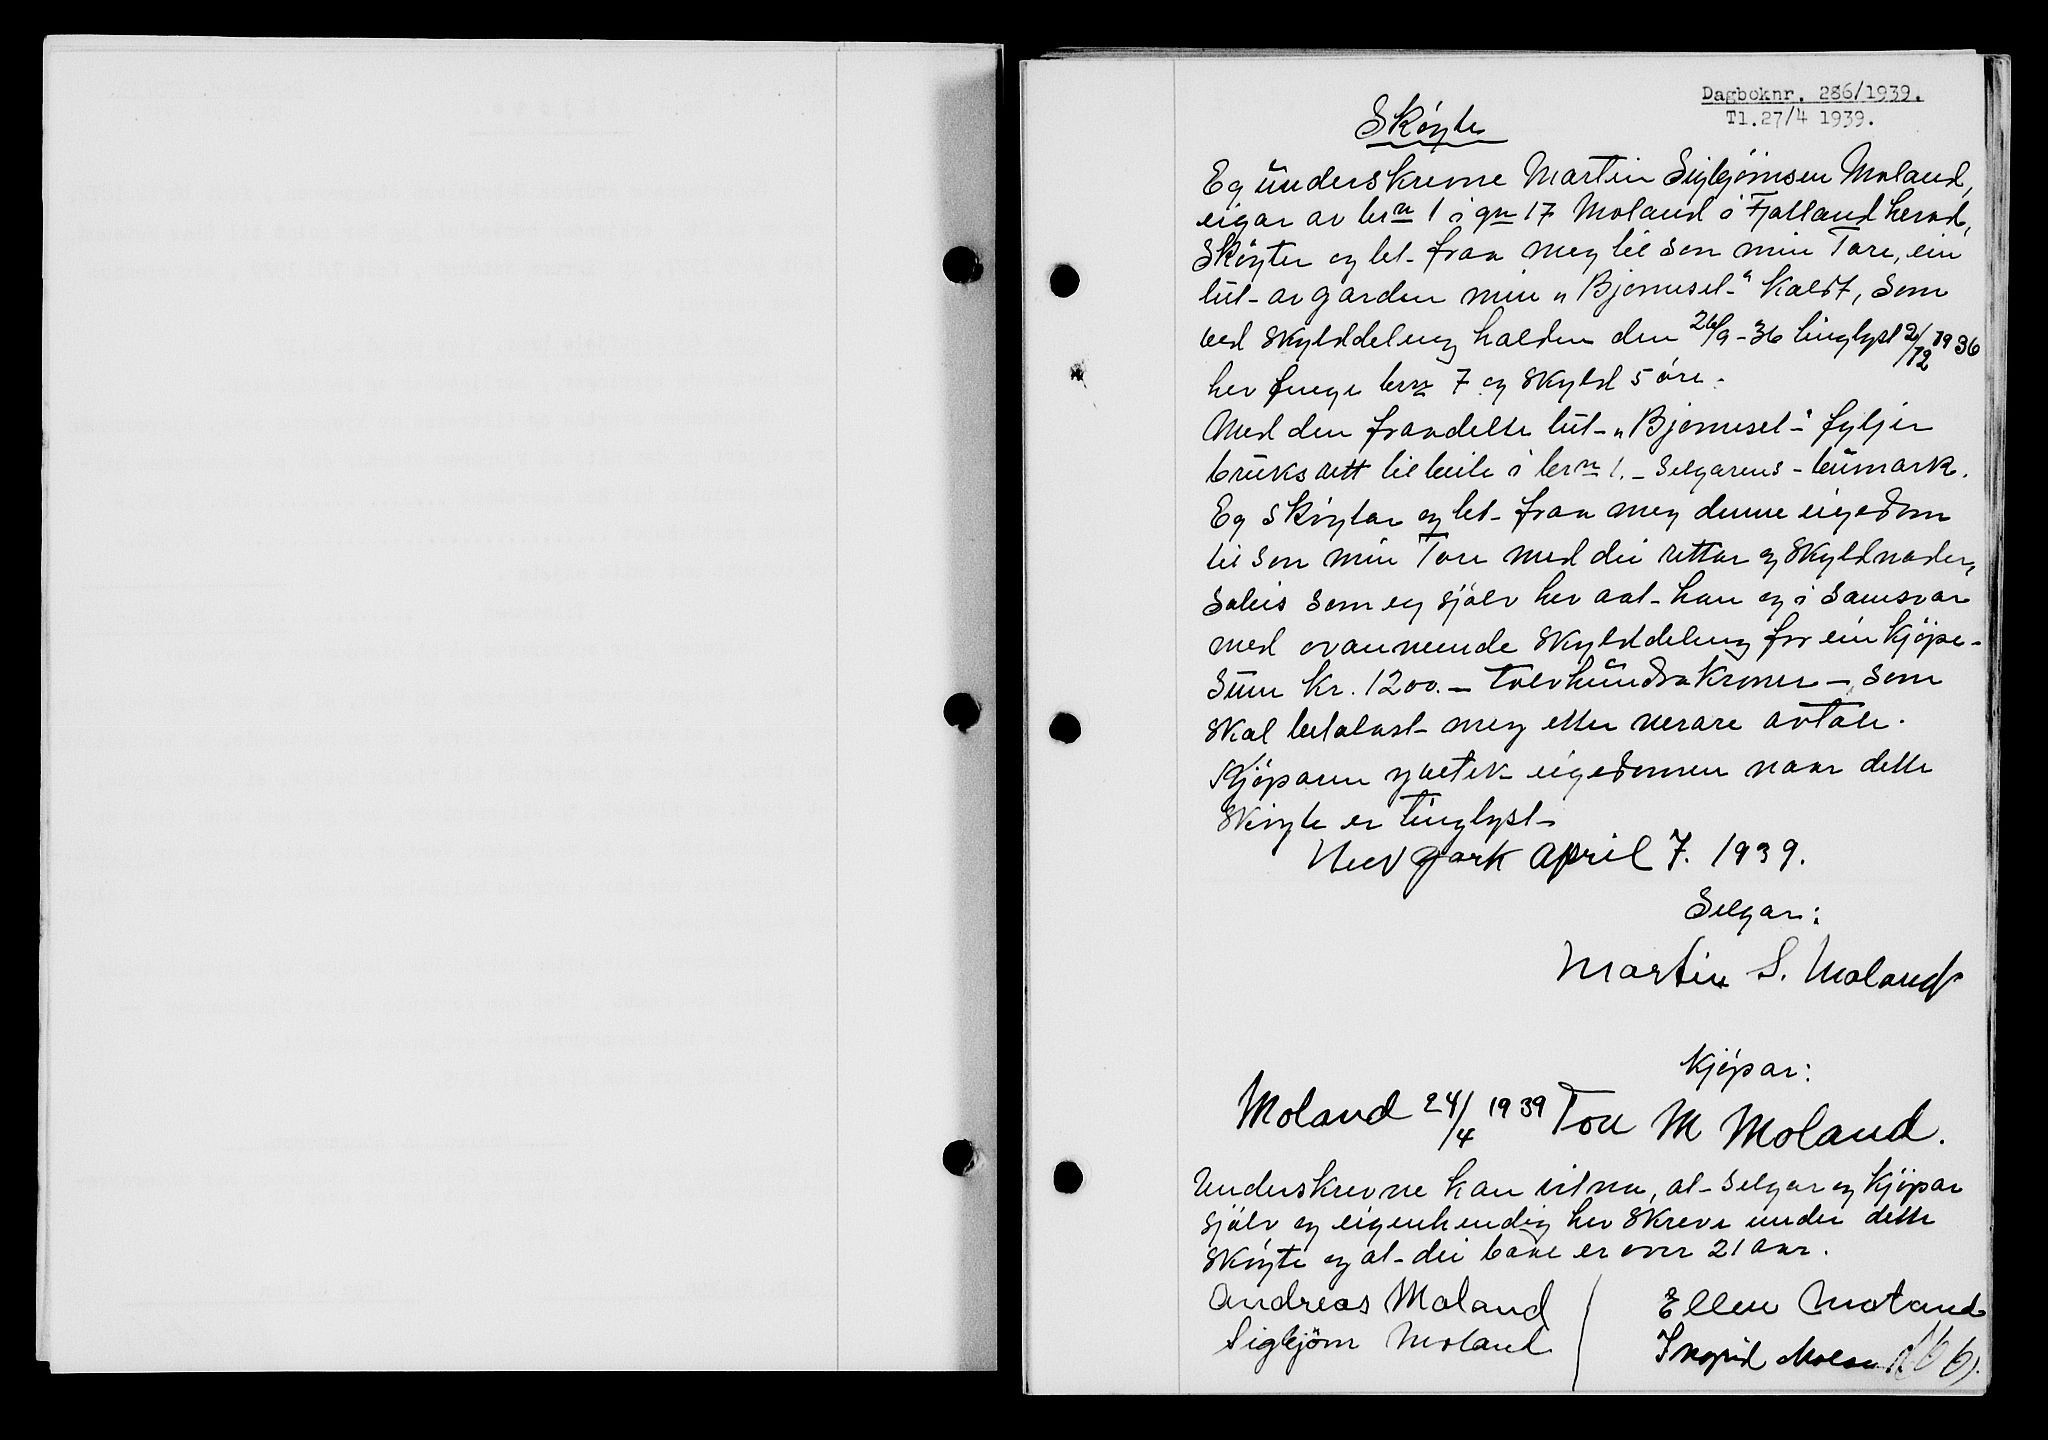 Dagboknr. 286/1939.
Tl.27/4 1939.
Skøyte
Eg underskrevne Martin Sigbjørnsen Moland,
eigar av brn 1 i gn 17 Moland i Fjotland herad,
Skøyter og let fraa meg til son min Tore, ein
lut av garden min "Bjørnusel" kaldt, som
ved skylddeling halden den 26/9-36 tinglyst 2/12 1936
hev fenge brn 7 og skyld 5 øre.
Med den fraadelte lut "Bjørnusel" fylgjer
bruksrett til beite i brn 1. - Selgarens - bumark.
Eg skøytar og let fraa meg denne eigedom
til son min Tore med dei rettar og skyldnader,
soleis som eg sjølv hev aat han og i samsvar
med ovannemnde skylddeling for ein kjøpe-
sum kr. 1200.- tolvhundra kroner - som
skal betalast meg etter nerare avtale.
Kjøparen yvertek eigedomen naar dette
skøyte er tinglyst
New York April 7. 1939.
Selgar:
Martin S. Moland
Kjøpar:
Moland 24/4 1939 Tore M Moland.
Underskrevne kan vitna, at selgar og kjøpar
sjølv og eigenhendig hev skreve under dette
skøyte og at dei baae er over 21 aar.
Andreas Moland / Ellen Moland
Sigbjørn Moland / Ingrid